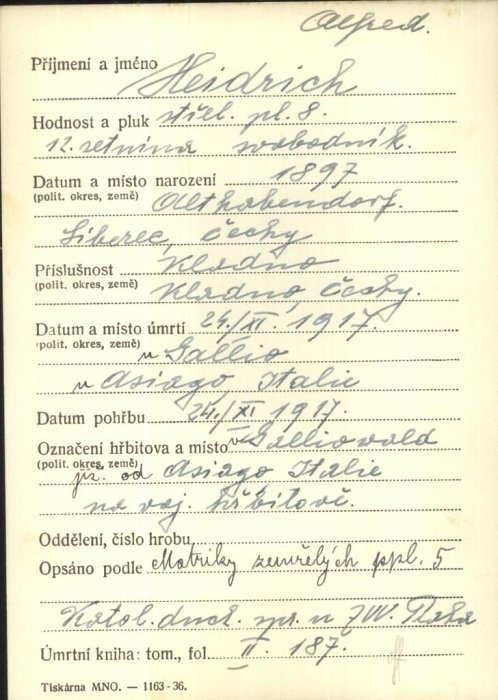 Alfred.
Příjmení a jméno Heidrich
Hodnost a pluk střel. pl. 8.
12. setnina svobodník.
Datum a místo narození 1897
(polit. okres, země) Althabendorf.
Liberec, Čechy
Příslušnost Kladno
(polit. okres, země) Kladno, Čechy.
Datum a místo úmrtí 24./XI. 1917.
(polit. okres, země) u Gallio
u Asiago Italie
Datum pohřbu 24./XI 1917.
Označení hřbitova a místo v Galliowald
(polit. okres, země) jz. od Asiago Italie
na voj. hřbitově.
Oddělení, číslo hrobu
Opsáno podle Matriky zemřelých ppl. 5
Katol. duch. spr. u ZVV. Praha
Úmrtní kniha: tom., fol. II. 187.
Tiskárna MNO. — 1163-36.